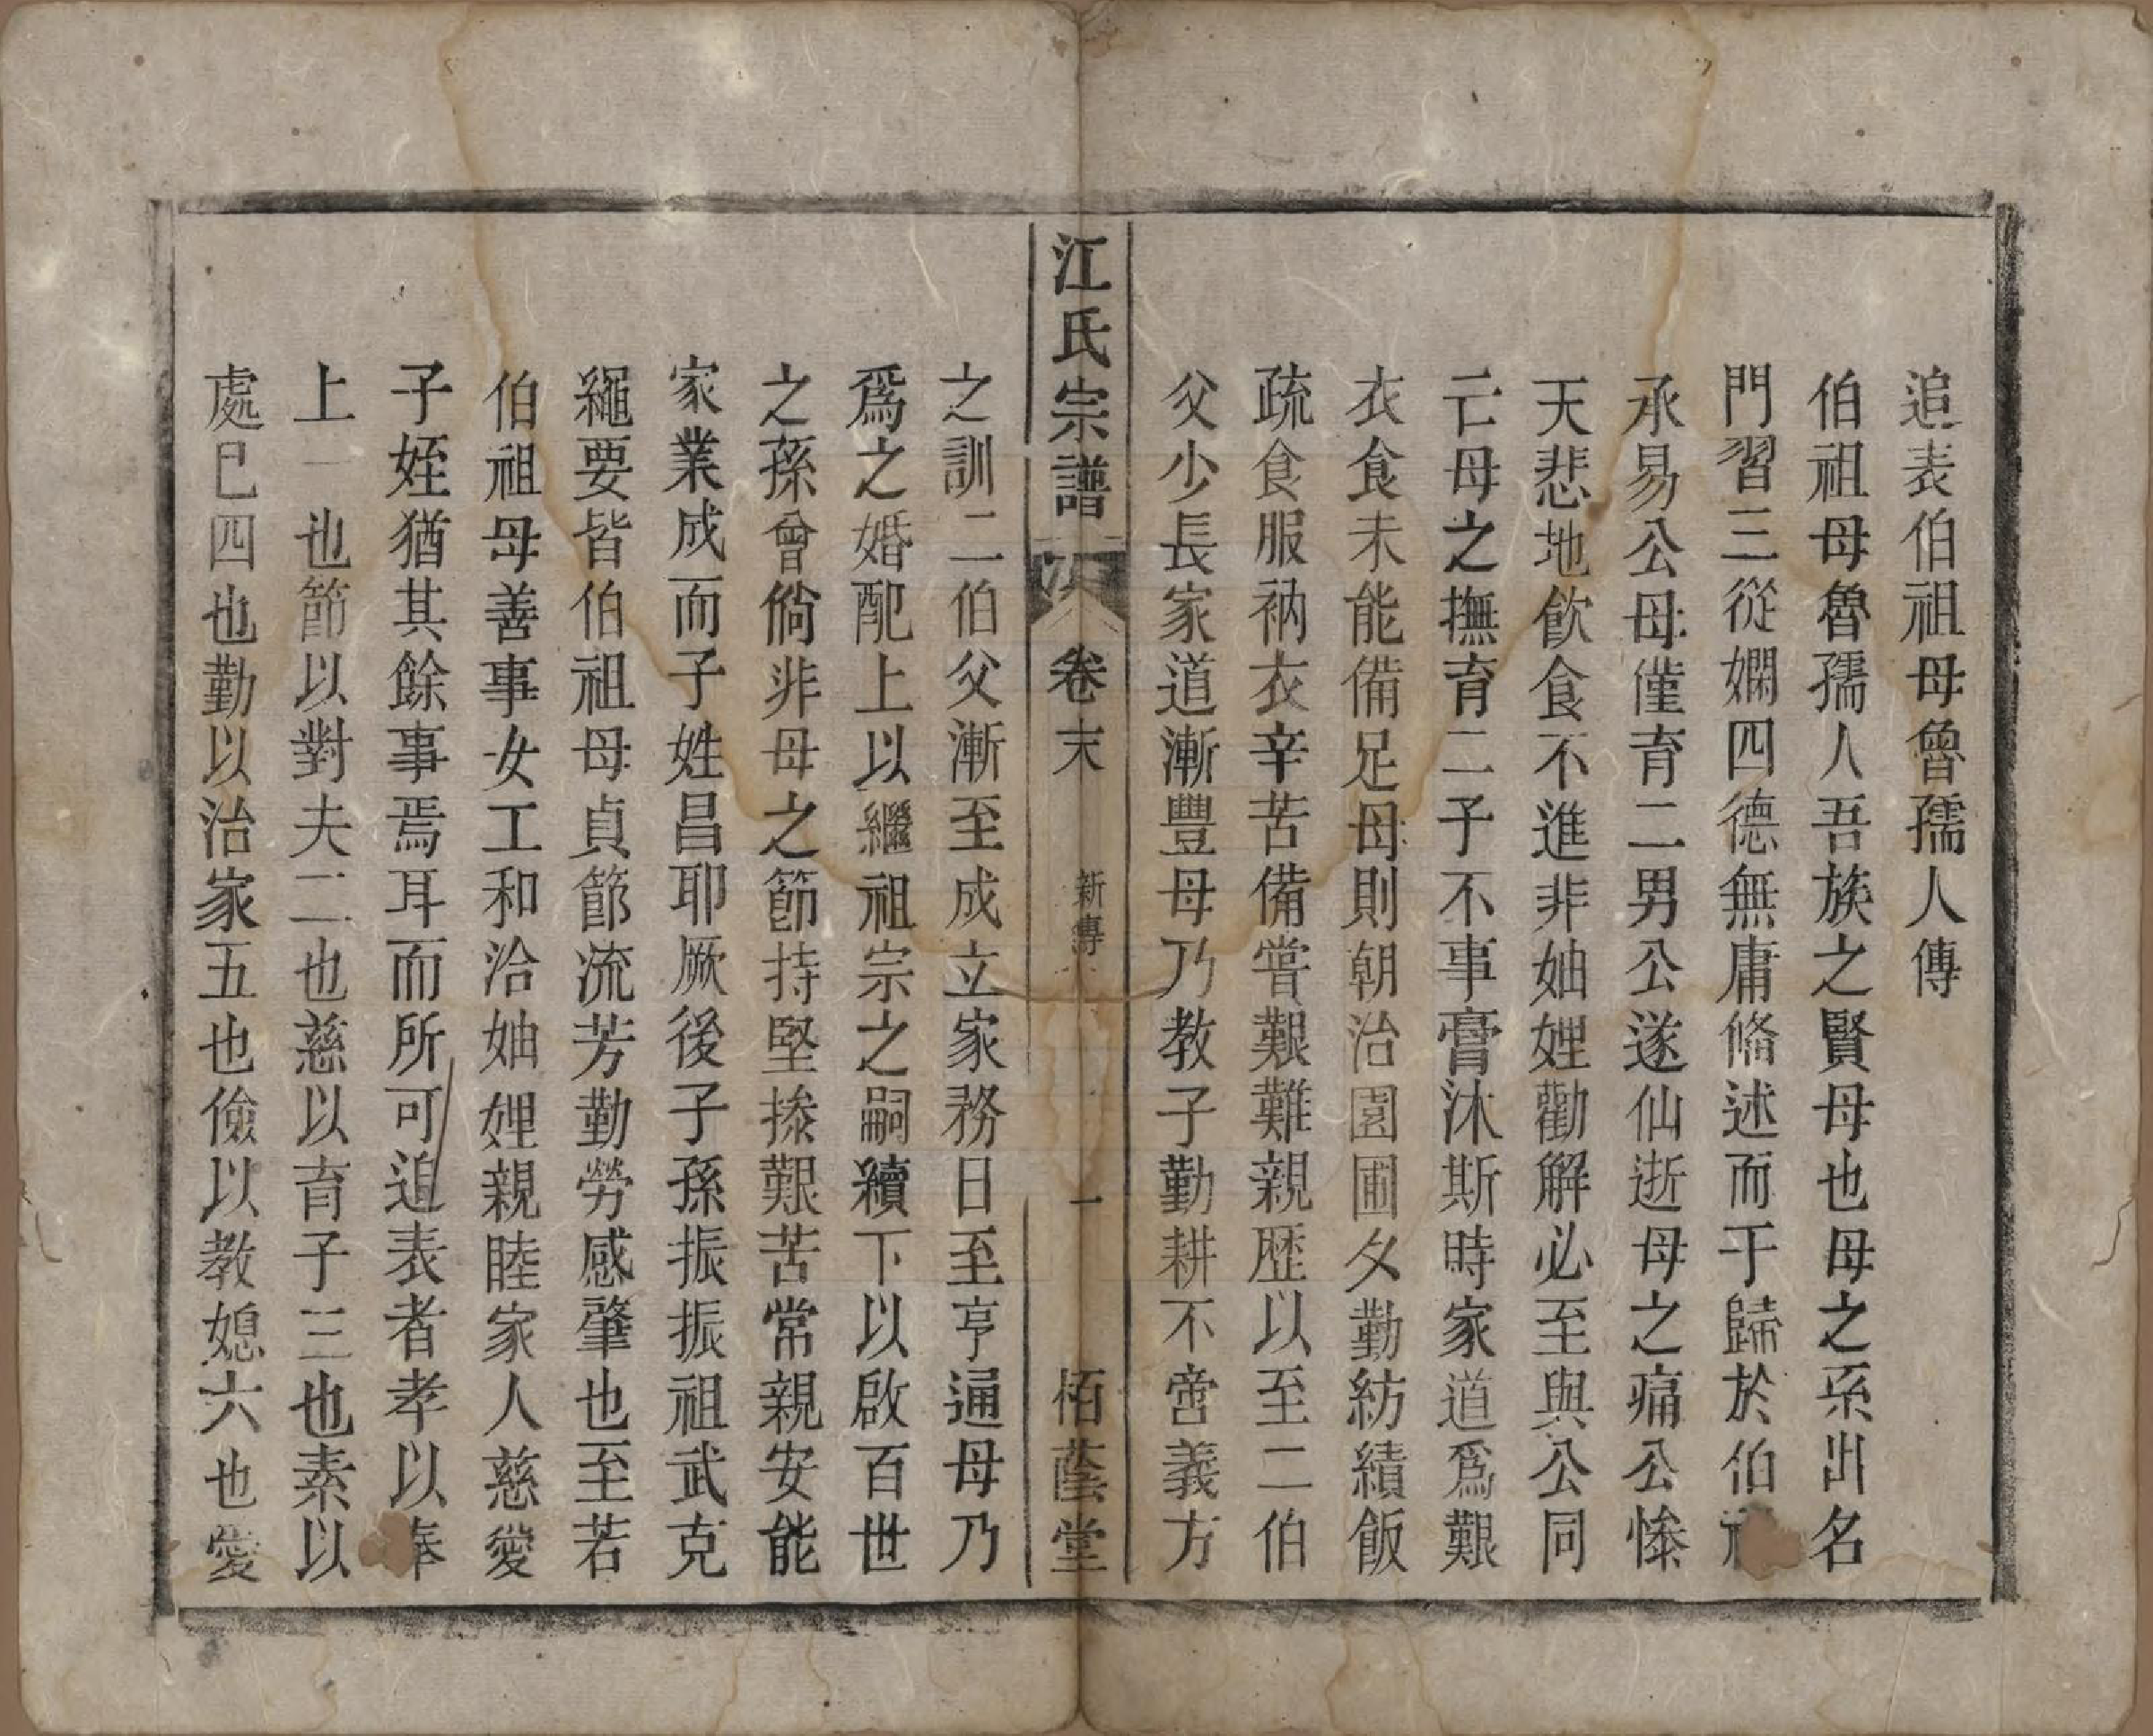 追表伯祖母魯孺人傳
伯祖母魯孺人吾族之賢母也母之系出名
門習三從嫻四德無庸脩述而于歸於伯
承易公母僅育二男公遂仙逝母之痛公慘
天悲地飲食不進非妯娌勸解必至與公同
亡母之撫育二子不事膏沐斯時家道爲艱
衣食未能備足母則朝治園圃夕勤紡績飯
疏食服衲衣辛苦備嘗艱難親歷以至二伯
父少長家道漸豐母乃教子勤耕不啻義方
江氏宗譜
卷末
新傳
一
栢蔭堂
之訓二伯父漸至成立家務日至亨通母乃
爲之婚配上以繼祖宗之嗣續下以啟百世
之孫曾倘非母之節持堅操艱苦常親安能
家業成而子姓昌耶厥後子孫振振祖武克
繩要皆伯祖母貞節流芳勤勞感肇也至若
伯祖母善事女工和洽妯娌親睦家人慈愛
子姪猶其餘事焉耳而所可追表者孝以奉
上一也節以對夫二也慈以育子三也素以
處己四也勤以治家五也儉以教媳六也愛